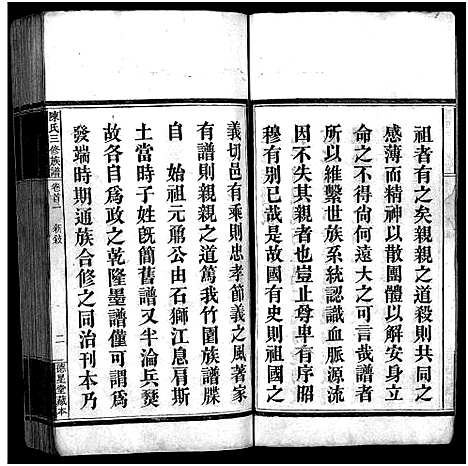 祖者有之矣親親之道殺共同之
感薄而精神以散團體以解安身立
命之不得尚何遠大之可言哉譜者
所以維繫世族系統認識血脈源流
因不失其親者也豈止尊卑有序昭
穆有別已哉是故國有史則祖國之
義切邑有乘則忠孝節義之風著家
有譜則親親之道篤我竹園族譜牒
自　始祖元鼐公由石獅江息肩斯
土當時子姓旣簡舊譜又半淪兵燹
故各自爲政之乾隆墨譜僅可謂爲
發端時期通族合修之同治刊本乃
陳氏三修族譜　卷首　新敘　二　德星堂藏本